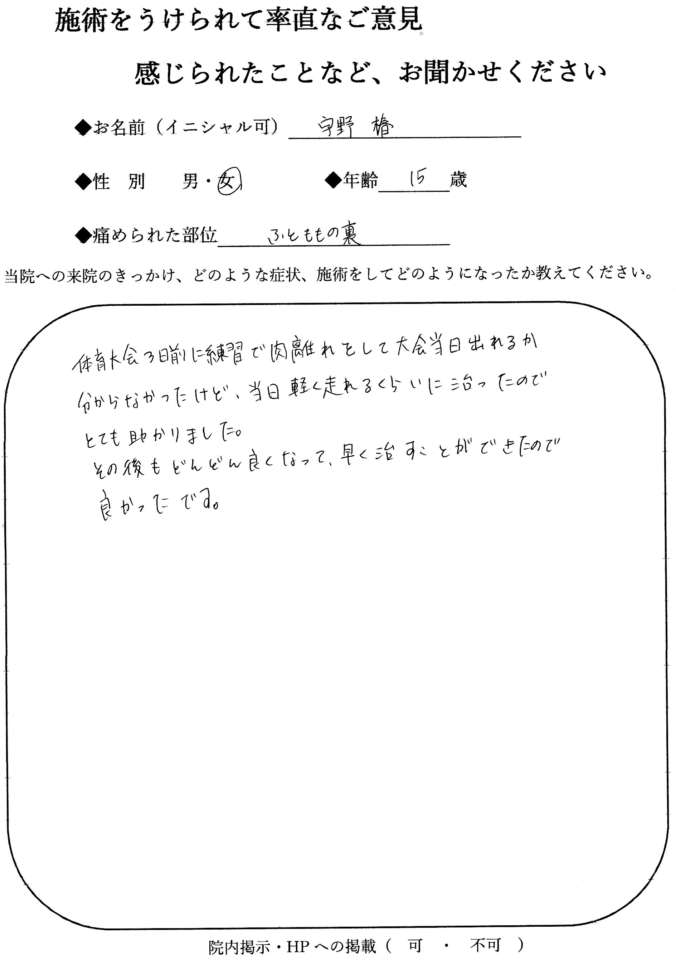 施術をうけられて率直なご意見
感じられたことなど、お聞かせください
◆お名前（イニシャル可） 宇野 椿
◆性 別 男・女 ◆年齢 15 歳
◆痛められた部位 ふとももの裏
当院への来院のきっかけ、どのような症状、施術をしてどのようになったか教えてください。
体育大会3日前に練習で肉離れをして大会当日出れるか
分からなかったけど、当日軽く走れるくらいに治ったので
とても助かりました。
その後もどんどん良くなって、早く治すことができたので
良かったです。
院内掲示・HPへの掲載（ 可 ・ 不可 ）